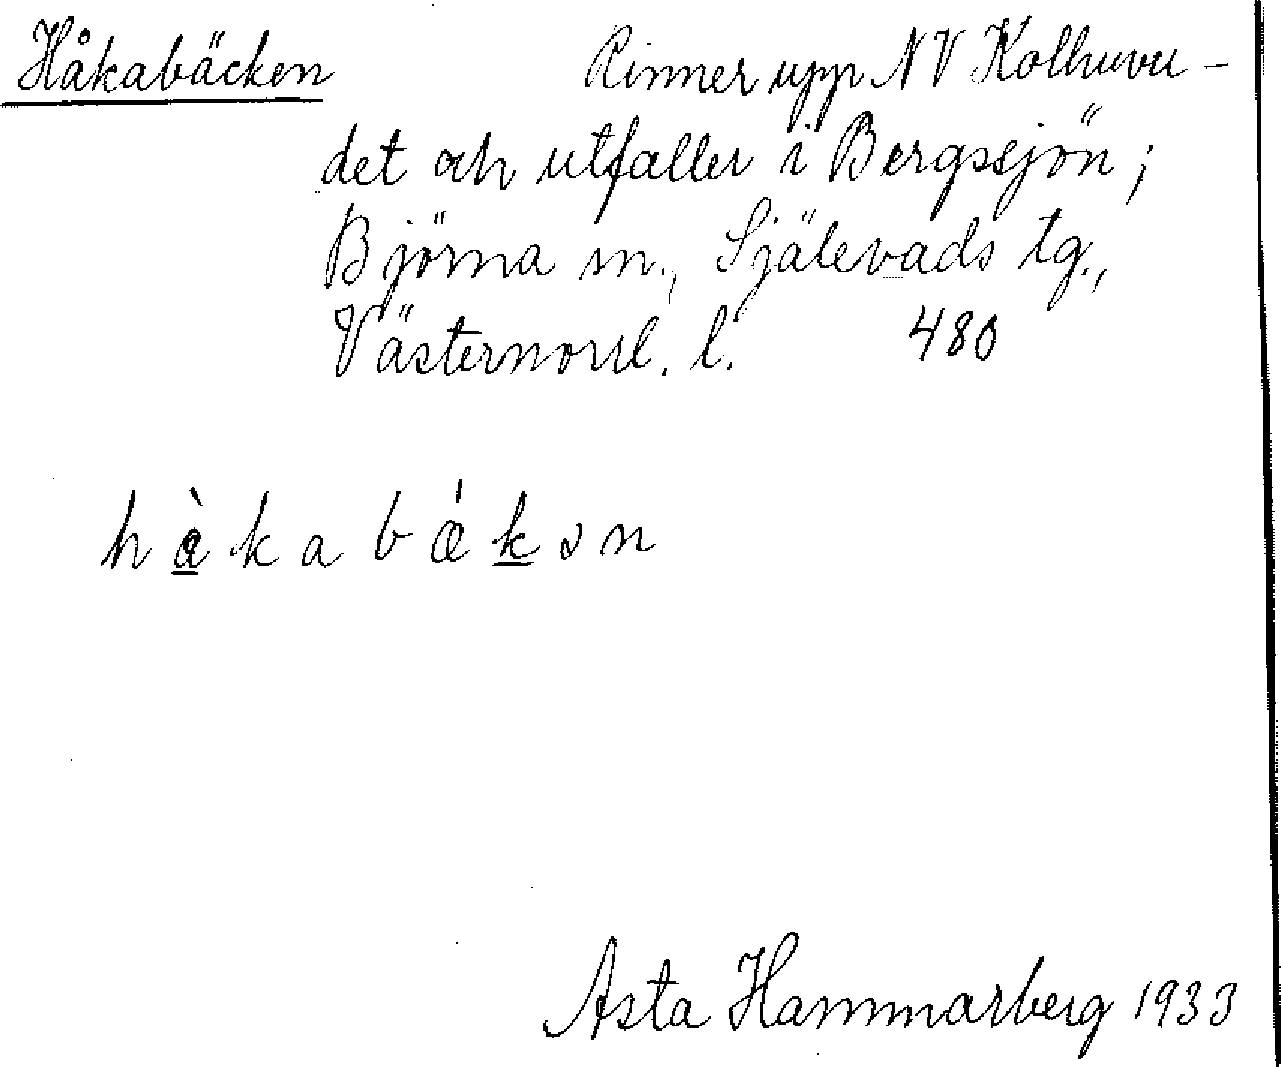 Håkabäcken Rinner upp NV Kolhuvu-
det och utfaller i Bergssjön;
Björna sn., Själevads tg.,
Västernorrl. l. 480
hàkabǽkən
Asta Hammarberg 1933